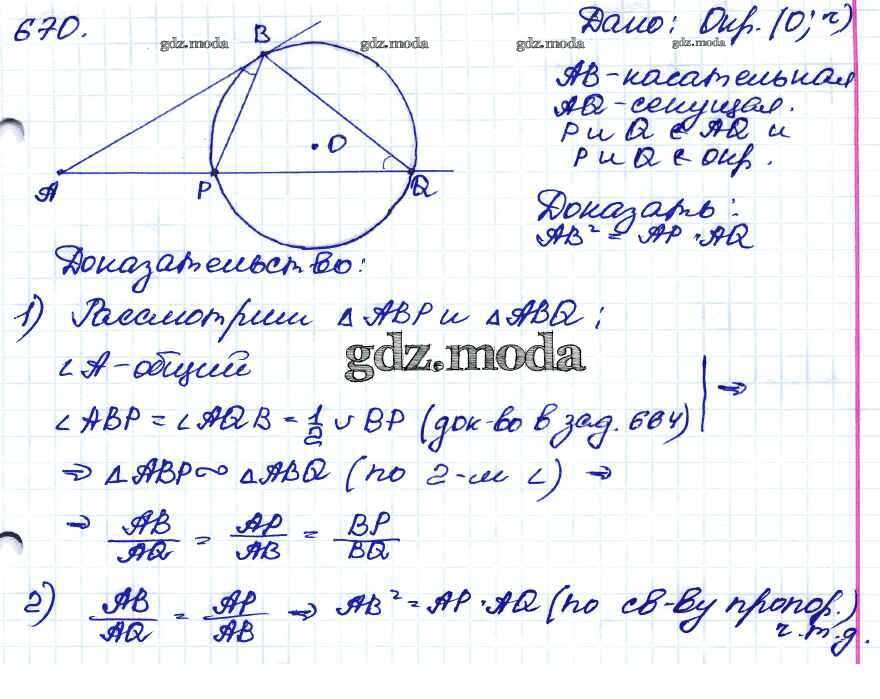 670.
Дано: Окр. (О; r)
gdz.moda gdz.moda gdz.moda gdz.moda
B
АВ - касательная
AQ - секущая.
P и Q ∈ AQ и
P и Q ∈ окр.
O
A P Q
Доказать:
AB² = AP · AQ
Доказательство:
1) Рассмотрим △ ABP и △ ABQ;
gdz.moda
∠A - общий
∠ABP = ∠AQB = 1/2 ∪ BP (док-во в зад. 664) ⇒
⇒ △ABP ∾ △ABQ (по 2-м ∠) ⇒
⇒ AB/AQ = AP/AB = BP/BQ
2) AB/AQ = AP/AB ⇒ AB² = AP · AQ (по св-ву пропор.)
ч.т.д.